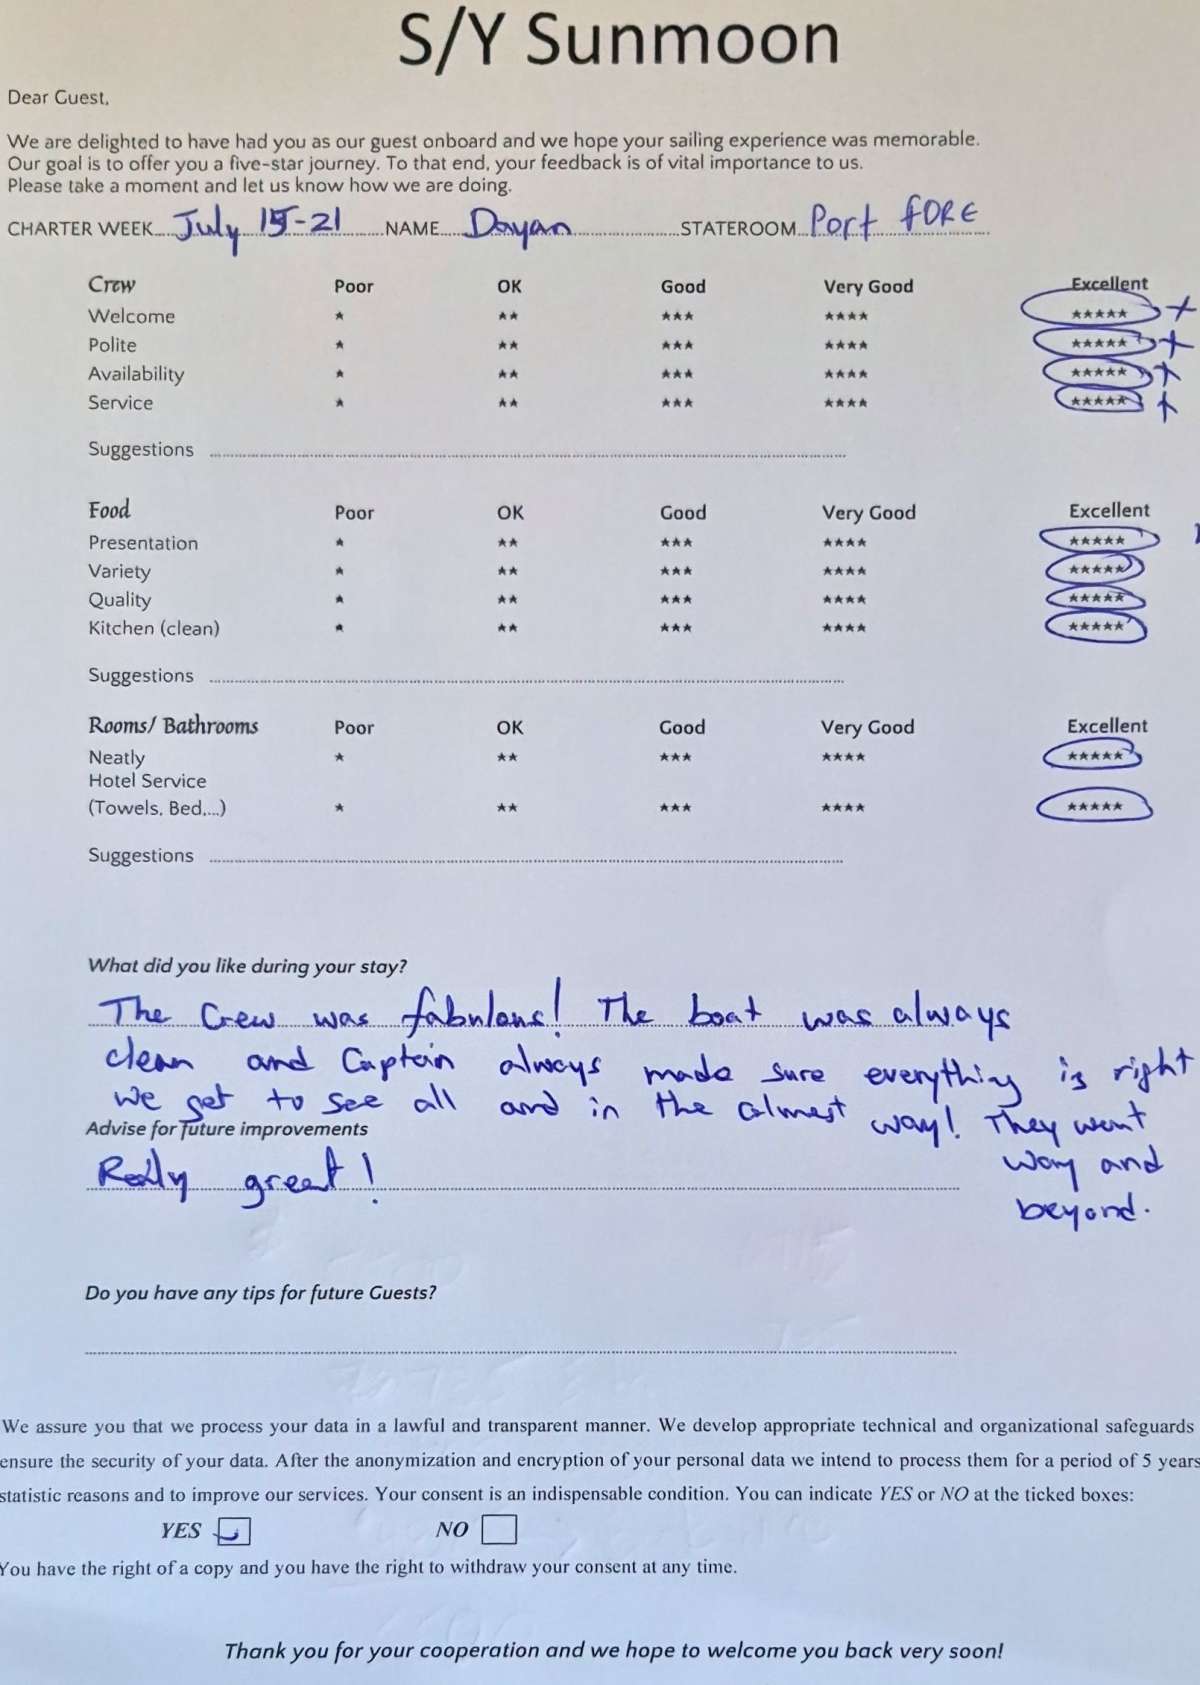 S/Y Sunmoon
Dear Guest,
We are delighted to have had you as our guest onboard and we hope your sailing experience was memorable.
Our goal is to offer you a five-star journey. To that end, your feedback is of vital importance to us.
Please take a moment and let us know how we are doing.
CHARTER WEEK July 15-21 NAME Dayan STATEROOM Port FORE
Crew Poor OK Good Very Good Excellent
Welcome ★ ★★ ★★★ ★★★★ ★★★★★ +
Polite ★ ★★ ★★★ ★★★★ ★★★★★ +
Availability ★ ★★ ★★★ ★★★★ ★★★★★ +
Service ★ ★★ ★★★ ★★★★ ★★★★★ +
Suggestions
Food Poor OK Good Very Good Excellent
Presentation ★ ★★ ★★★ ★★★★ ★★★★★
Variety ★ ★★ ★★★ ★★★★ ★★★★★
Quality ★ ★★ ★★★ ★★★★ ★★★★★
Kitchen (clean) ★ ★★ ★★★ ★★★★ ★★★★★
Suggestions
Rooms/ Bathrooms Poor OK Good Very Good Excellent
Neatly ★ ★★ ★★★ ★★★★ ★★★★★
Hotel Service
(Towels, Bed,...) ★ ★★ ★★★ ★★★★ ★★★★★
Suggestions
What did you like during your stay?
The Crew was fabulous! The boat was always
clean and Captain always made sure everything is right
we get to see all and in the calmest way! They went
way and
beyond.
Advise for future improvements
Really great!
Do you have any tips for future Guests?
We assure you that we process your data in a lawful and transparent manner. We develop appropriate technical and organizational safeguards
ensure the security of your data. After the anonymization and encryption of your personal data we intend to process them for a period of 5 years
statistic reasons and to improve our services. Your consent is an indispensable condition. You can indicate YES or NO at the ticked boxes:
YES NO
You have the right of a copy and you have the right to withdraw your consent at any time.
Thank you for your cooperation and we hope to welcome you back very soon!